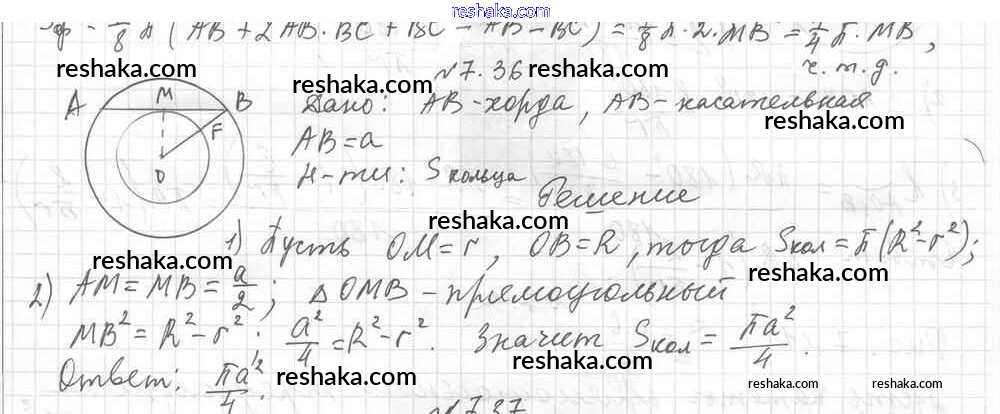 reshaka.com
Sф = 1/8 π (AB² + 2AB·BC + BC² - AB² - BC²) = 1/8 π·2·MB² = 1/4 π·MB²,
ч.т.д.
reshaka.com
reshaka.com
№7.36
A M B F O
Дано: AB-хорда, AB-касательная
reshaka.com
AB=a
Н-ти: Sкольца
reshaka.com
Решение
reshaka.com
1) Пусть OM=r, OB=R, тогда Sкол=π(R²-r²);
reshaka.com
reshaka.com
2) AM=MB=a/2; △OMB-прямоугольный
MB²=R²-r²; a²/4=R²-r². Значит Sкол=πa²/4.
reshaka.com
Ответ: πa²/4.
reshaka.com
reshaka.com
reshaka.com
№7.37